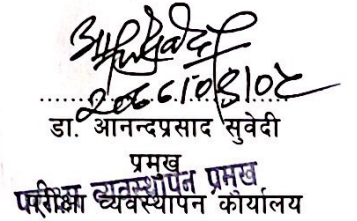 डा. आनन्दप्रसाद सुवेदी
प्रमुख
परीक्षा व्यवस्थापन प्रमुख
परीक्षा व्यवस्थापन कार्यालय